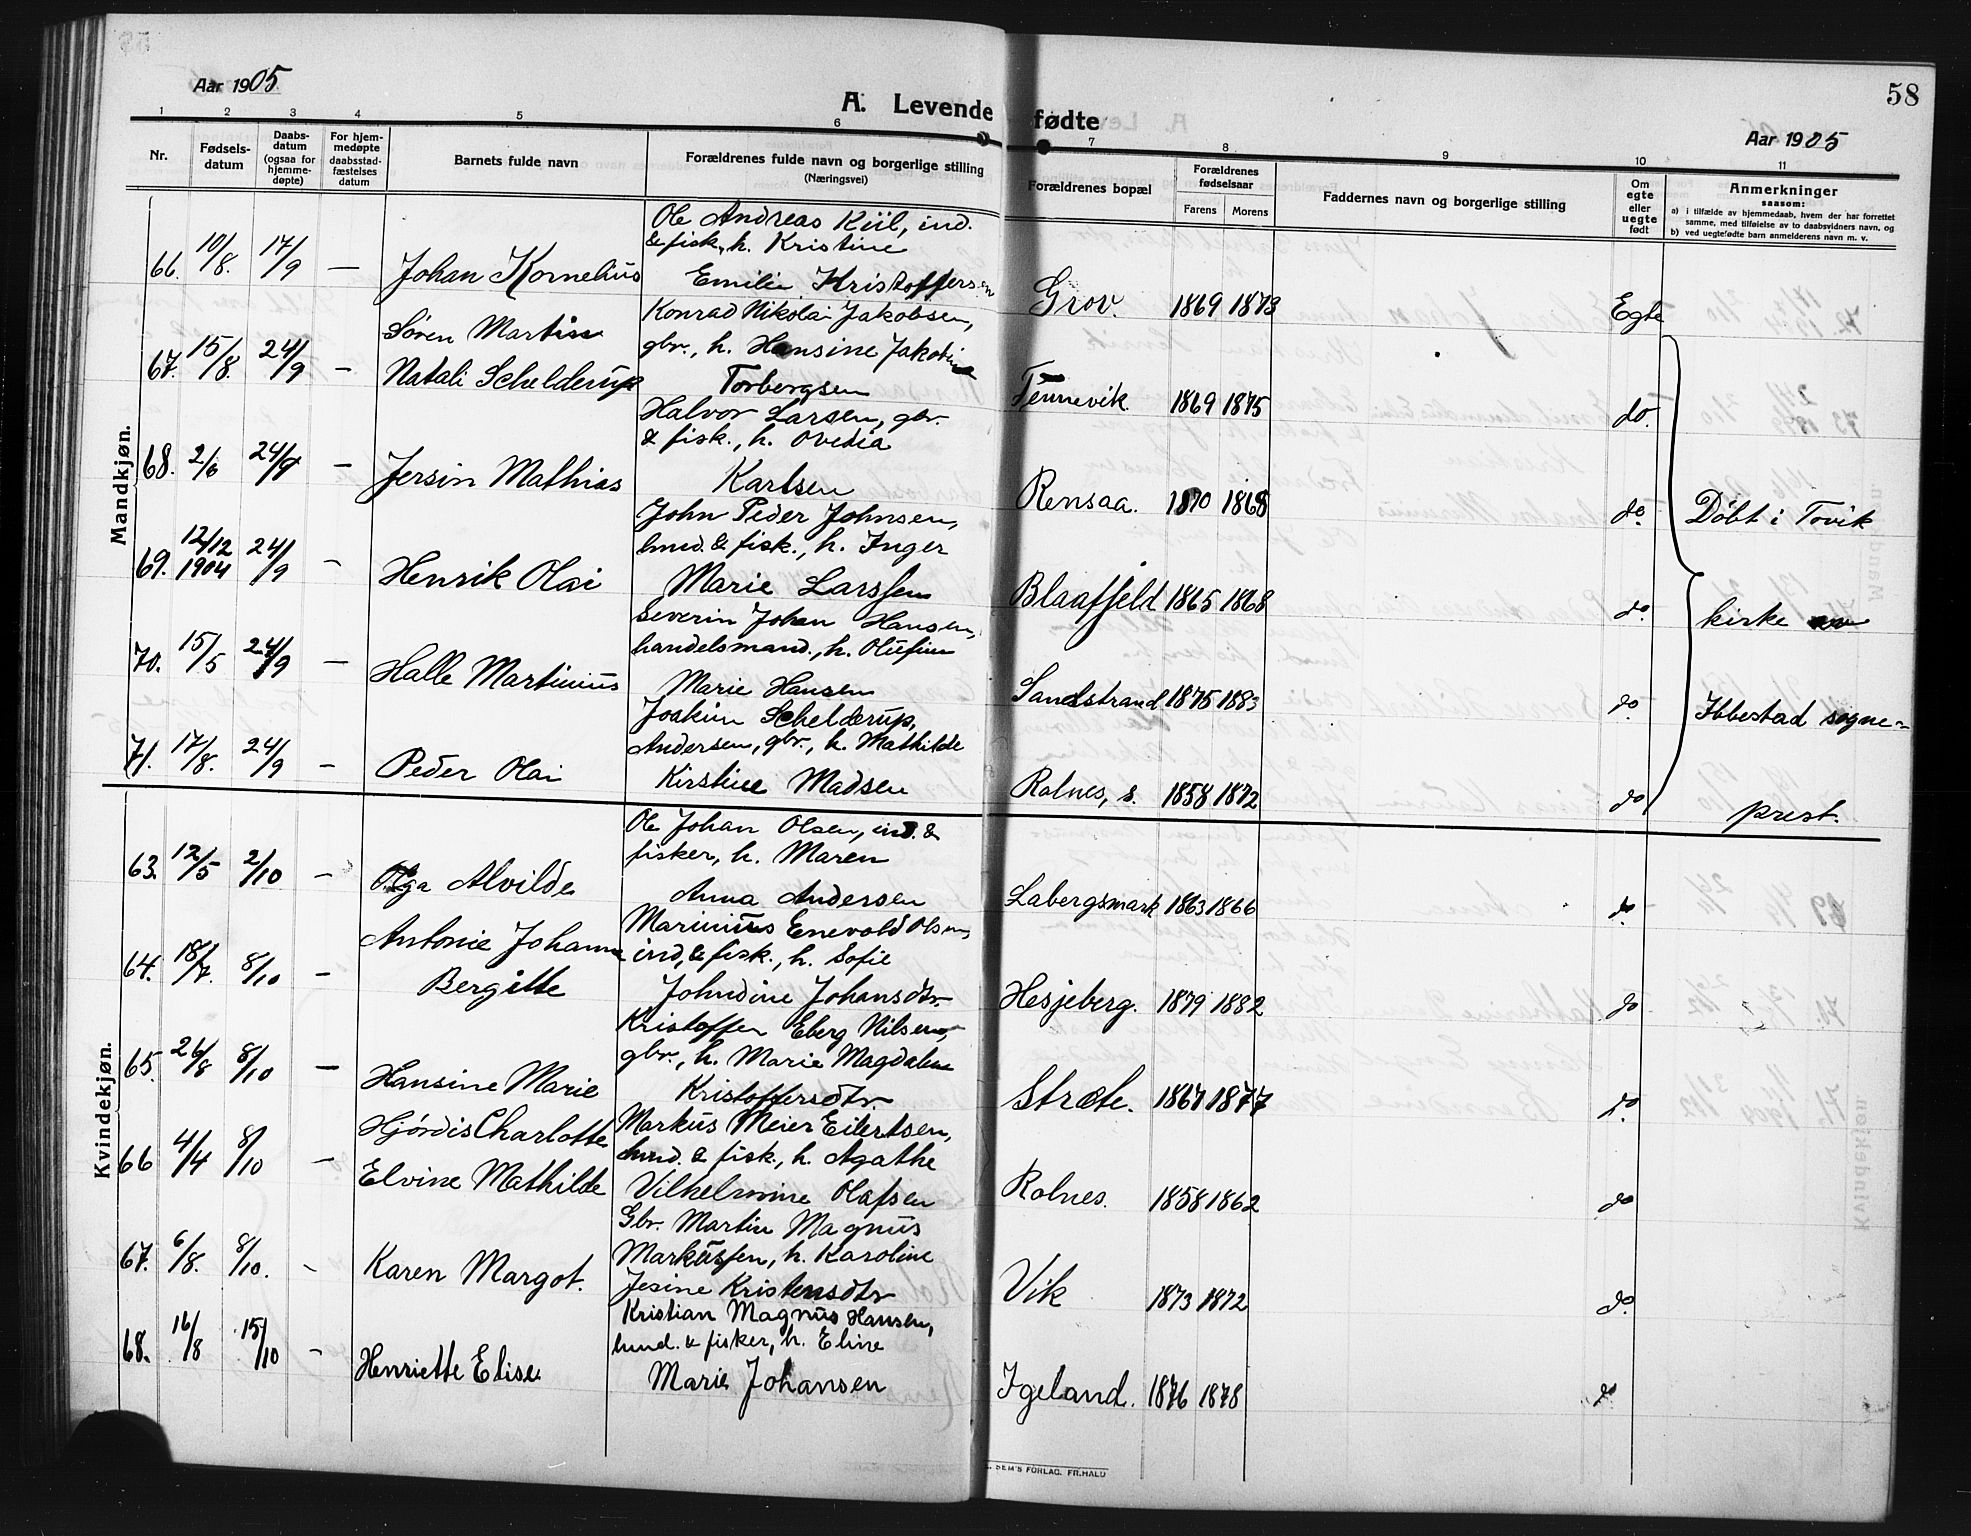 Aar 1905
A. Levende fødte
58
Aar 1905
1 2 3 4 5 6 7 8 9 10 11
Nr.
Fødsels-
datum
Daabs-
datum
(ogsaa for
hjemme-
døpte)
For hjem-
medøpte
daabsstad-
fæstelses
datum
Barnets fulde navn
Forældrenes fulde navn og borgerlige stilling
(Næringsvei)
Forældrenes bopæl
Forældrenes
fødselsaar
Farens Morens
Faddernes navn og borgerlige stilling
Om
egte
eller
uegte
født
Anmerkninger
saasom:
a) i tilfælde av hjemmedaab, hvem der har forrettet
samme, med tilføielse av to daabsvidners navn, og
b) ved uegtefødte barn anmelderens navn m. v.
Mandkjøn.
Ole Andreas Kiil, ind.
& fisk, h. Kristine
66. 10/8. 17/9 — Johan Kornelius Emilie Kristoffersen Grov. 1869 1873 Egte
Søren Martin Konrad Nikolai Jakobsen,
gbr., h. Hansine Jakobine
67. 15/8. 24/9 – Natali Schelderup Torbergsen Tennevik 1869 1875 do.
Halvor Larsen, gbr.
& fisk., h. Ovedia
68. 2/6 24/9 – Jersin Mathias Karlsen Rensaa. 1870 1868 do. Døbt i Tovik
John Peder Johnsen,
lmd. & fisk., h. Inger
69. 12/12 1904 24/9 – Henrik Olai Marie Larssen Blaafjeld 1865 1868 do. kirke av
Severin Johan Hansen,
handelsmand., h. Olufine
70. 15/5 24/9 — Halle Martinius Marie Hansen Sandstrand 1875 1883 do. Ibbestad sogne-
Joakim Schelderup,
Andersen, gbr., h. Mathilde
71. 17/8. 24/9 – Peder Olai Kirstine Madsen Rolnes, s. 1858 1872 do prest.
Kvindekjøn.
Ole Johan Olsen, ind. &
fisker, h. Maren
63. 12/5 2/10 – Olga Alvilde Anna Andersen Labergsmark 1863 1866 do.
Antonie Johanne Marinius Enevold Olsen,
ind, & fisk., h. Sofie
64. 18/7. 8/10 – Bergitte Johndine Johansdtr Hesjeberg. 1879 1882 do
Kristoffer Eberg Nilsen,
gbr., h. Marie Magdalene
65. 26/8 8/10 – Hansine Marie Kristoffersdtr. Stræte. 1867 1877 do.
Hjørdis Charlotte Markus Meier Eilertsen,
lmd. & fisk., h. Agathe
66 4/4 8/10 – Elvine Mathilde Vilhelmine Olafsen Rolnes. 1858 1862 do
Gbr. Martin Magnus
67. 6/8. 8/10. – Karen Margot. Markussen, h. Karoline
Jesine Kristensdtr Vik 1873 1872 do.
Kristian Magnus Hansen,
lmd. & fisker, h. Eline
68. 16/8 15/10 – Henriette Elise Marie Johansen Igeland. 1876 1878 do
SEM'S FORLAG. FR.HALD